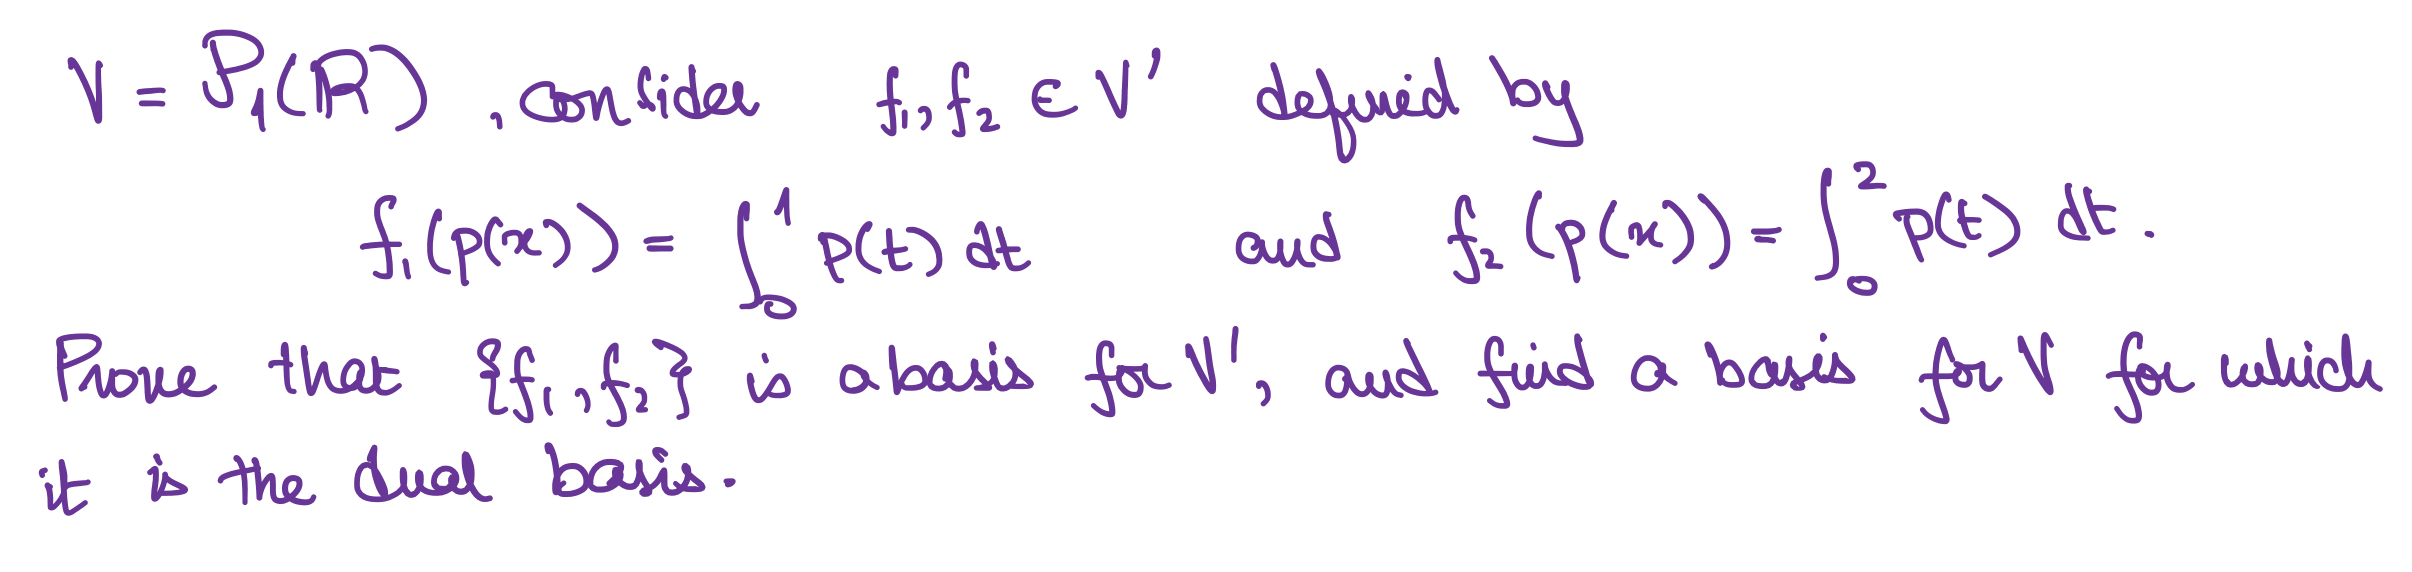 V = P₁(ℝ), consider f₁, f₂ ∈ V' defined by
f₁(p(x)) = ∫₀¹ p(t) dt and f₂(p(x)) = ∫₀² p(t) dt.
Prove that {f₁, f₂} is a basis for V', and find a basis for V for which
it is the dual basis.